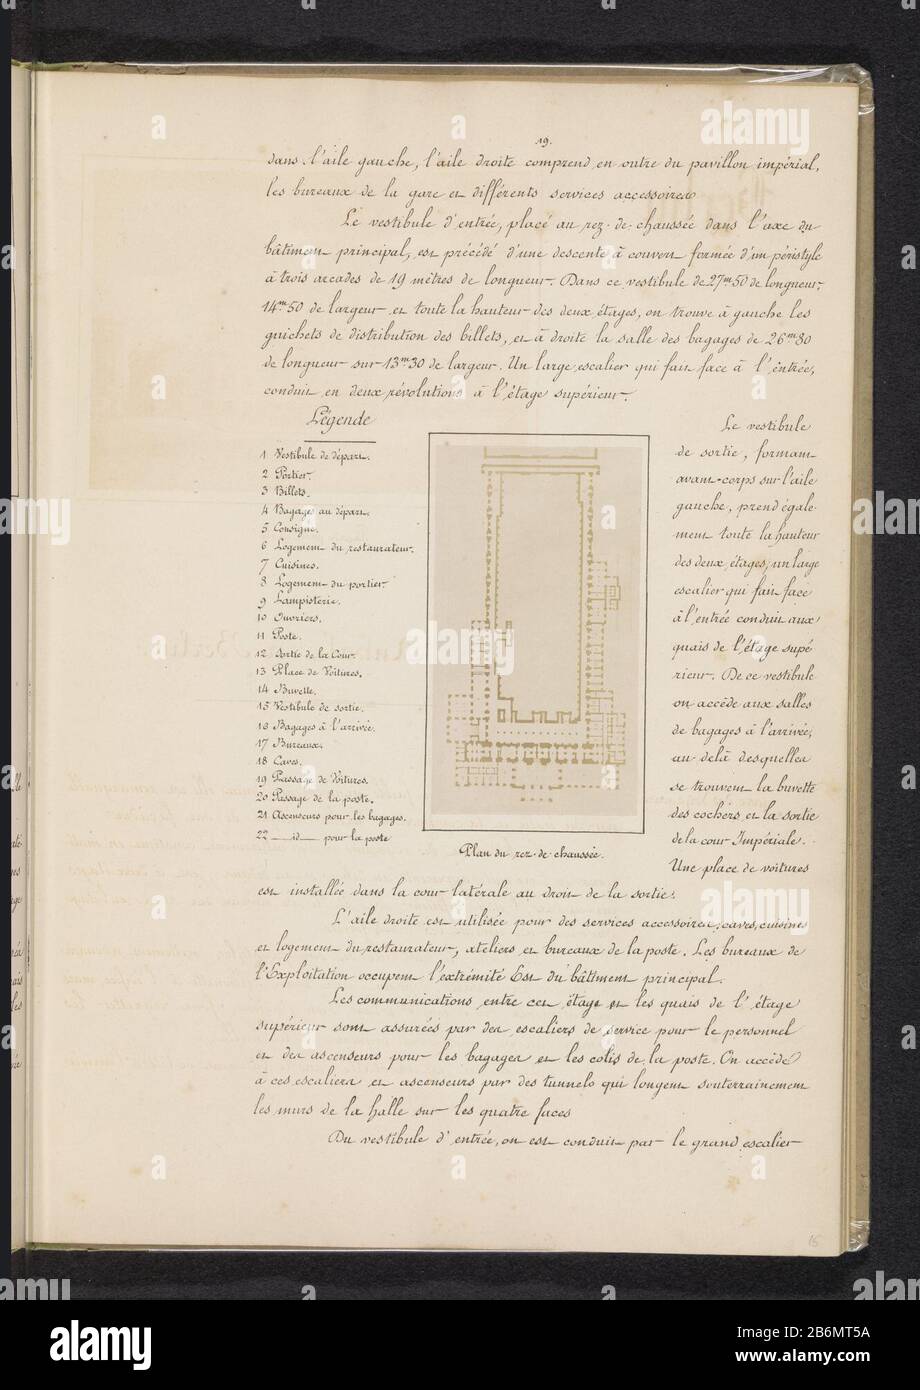 19.
dans l'aile gauche, l'aile droite comprend en outre du pavillon impérial,
les bureaux de la gare et différents services accessoires
Le vestibule d'entrée, placé au rez-de-chaussée dans l'axe du
bâtiment principal, est précédé d'une descente à couvert formée d'un péristyle
à trois arcades de 19 mètres de longueur. Dans ce vestibule de 27m50 de longueur,
14m50 de largeur et toute la hauteur des deux étages, on trouve à gauche les
guichets de distribution des billets, et à droite la salle des bagages de 26m80
de longueur sur 13m30 de largeur. Un large escalier qui fait face à l'entrée,
conduit en deux révolutions à l'étage supérieur.
Légende
1 Vestibule de départ.
2 Portier.
3 Billets.
4 Bagages au départ.
5 Consigne.
6 Logement du restaurateur.
7 Cuisines.
8 Logement du portier
9 Lampisterie.
10 Ouvriers.
11 Poste.
12 Sortie de la Cour.
13 Place de Voitures.
14 Buvette.
15 Vestibule de sortie.
16 Bagages à l'arrivée.
17 Bureaux.
18 Caves.
19 Passage de Voitures.
20 Passage de la poste.
21 Ascenseurs pour les bagages.
22 — id — pour la poste
Plan du rez-de-chaussée.
Le vestibule
de sortie, formant
avant-corps sur l'aile
gauche, prend égale-
ment toute la hauteur
des deux étages, un large
escalier qui fait face
à l'entrée conduit aux
quais de l'étage supé
rieur. De ce vestibule
on accède aux salles
de bagages à l'arrivée,
au delà desquelles
se trouvent la buvette
des cochers et la sortie
de la cour Impériale.
Une place de voitures
est installée dans la cour latérale au droit de la sortie.
L'aile droite est utilisée pour des services accessoires, caves, cuisines
et logement du restaurateur, ateliers et bureaux de la poste. Les bureaux de
l'Exploitation occupent l'extrémité Est du bâtiment principal.
Les communications entre cet étage et les quais de l'étage
supérieur sont assurées par des escaliers de service pour le personnel
et des ascenseurs pour les bagages et les colis de la poste. On accède
à ces escaliers et ascenseurs par des tunnels qui longent souterrainement
les murs de la halle sur les quatre faces
Du vestibule d'entrée, on est conduit par le grand escalier
16
alamy
Image ID: W6BMT5A
www.alamy.com